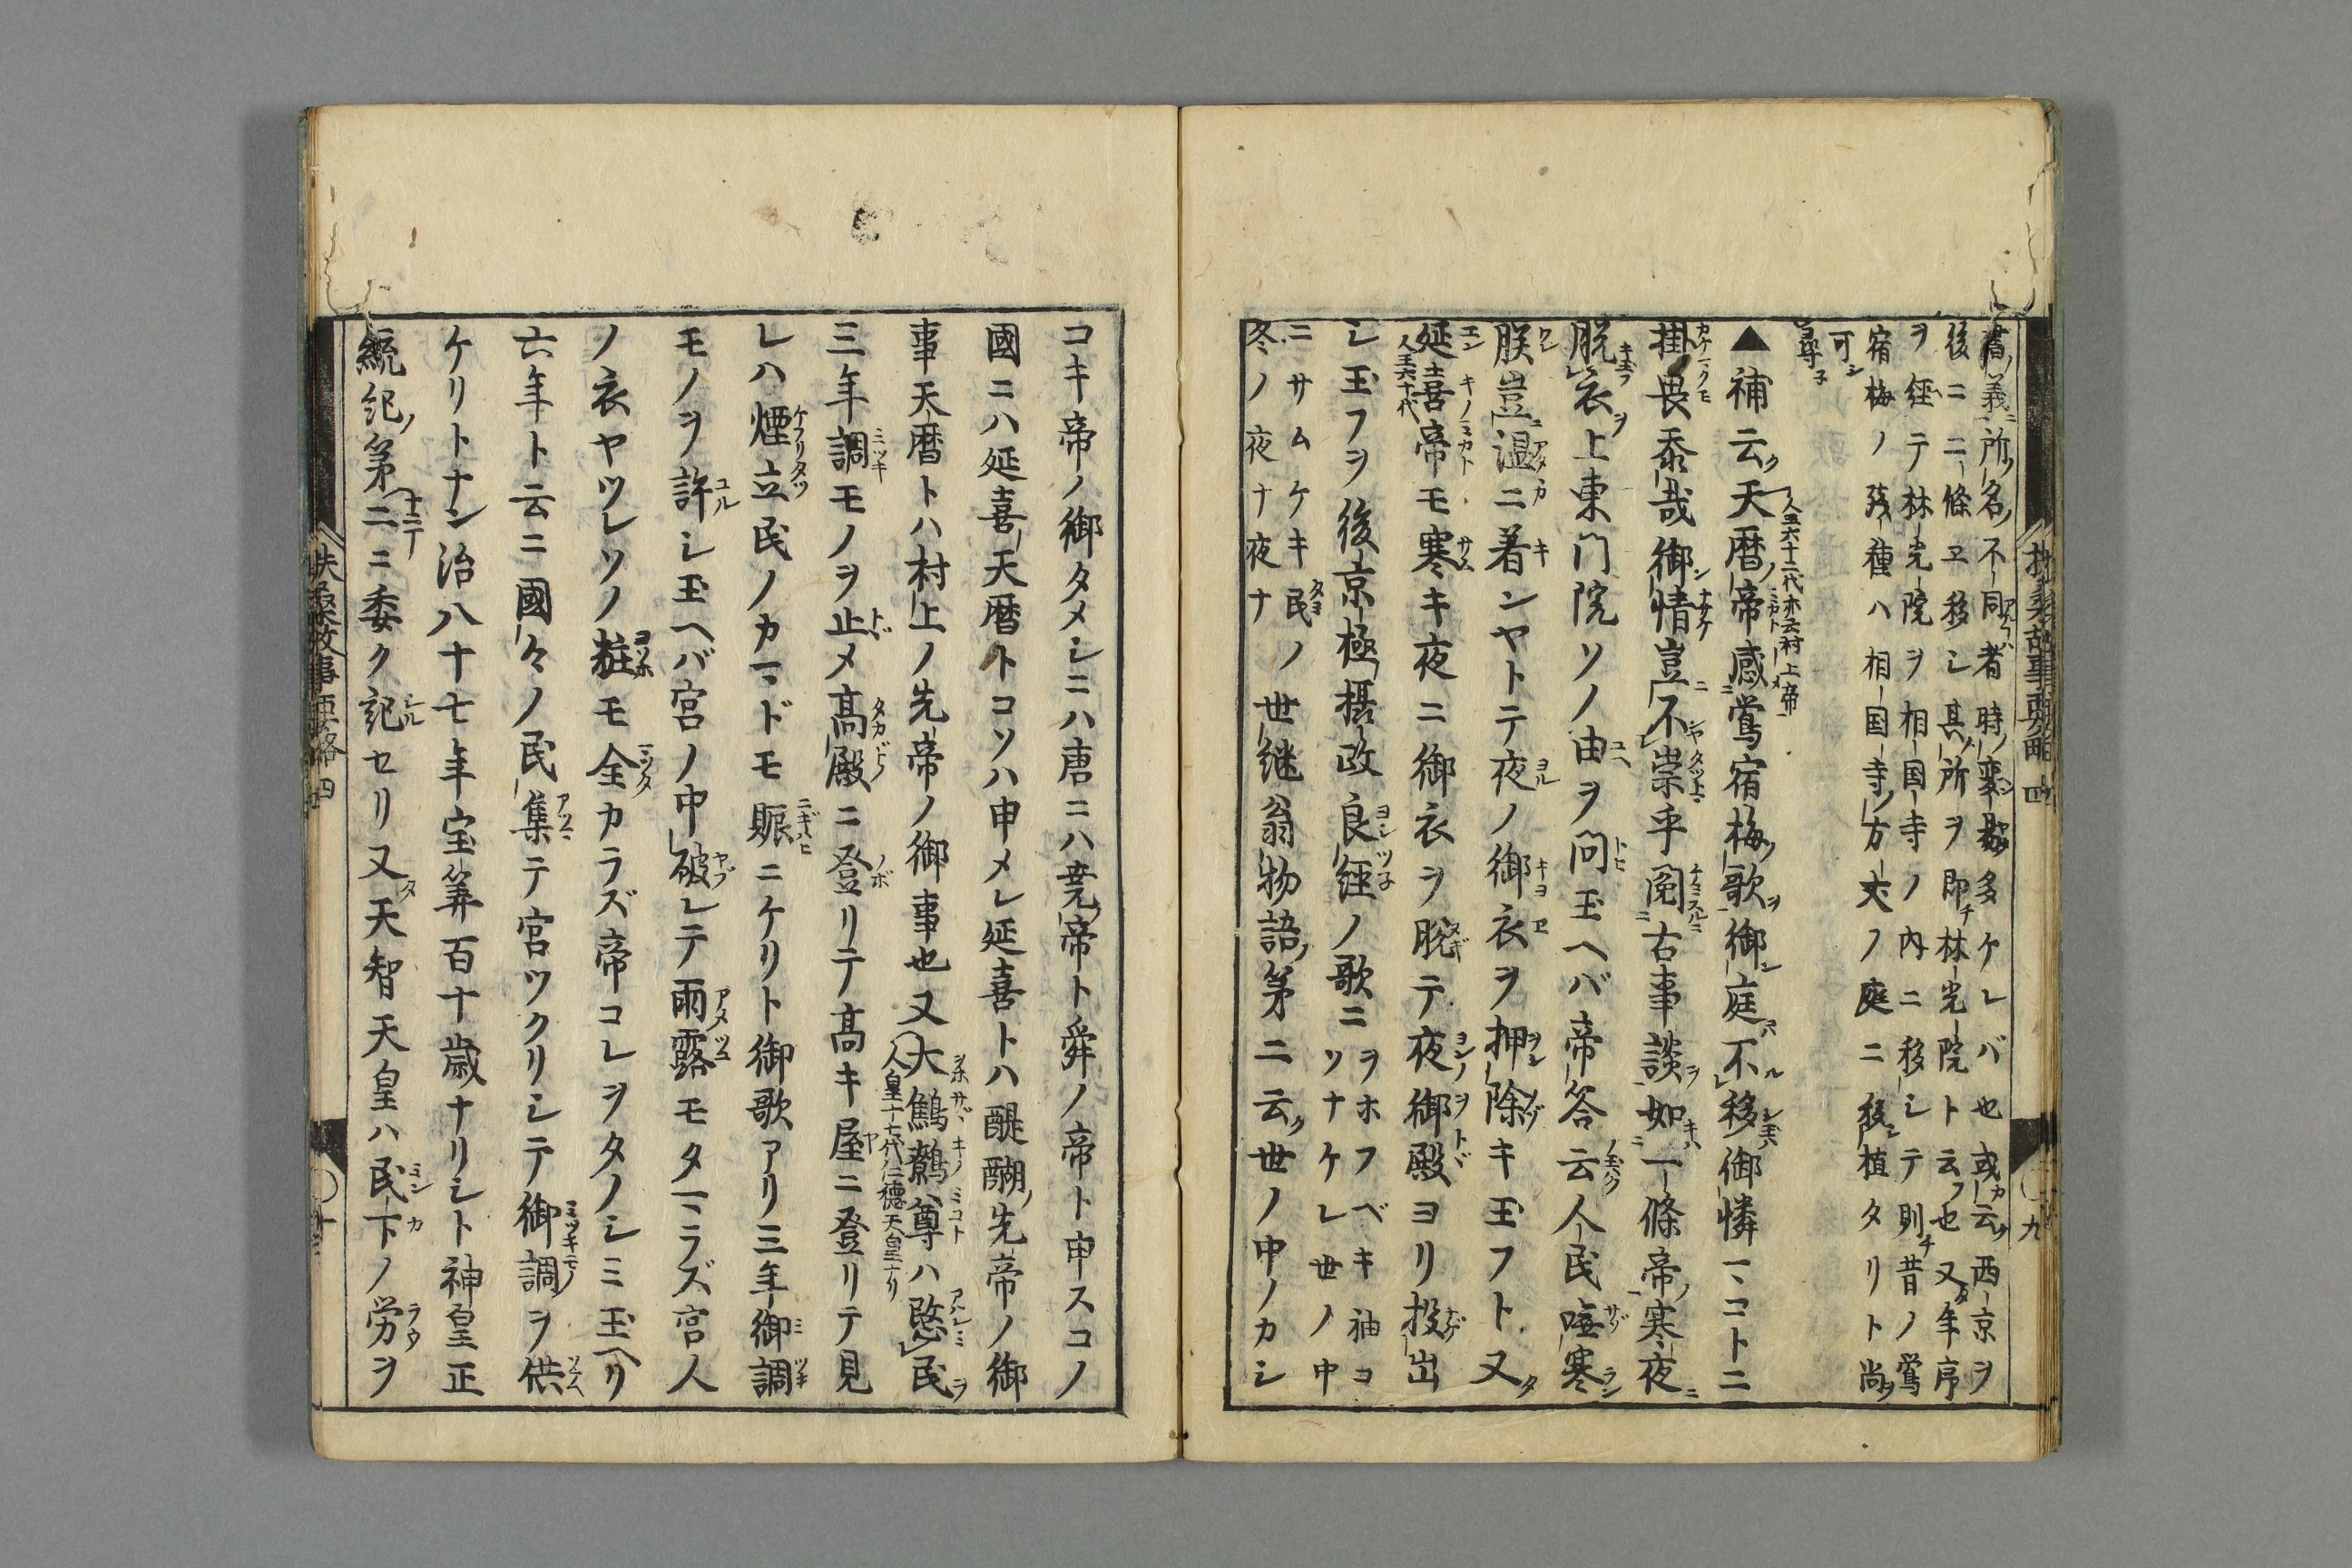 書ノ義ニ所ノ名ノ不同者時ノ変数多ケレバ也或云ク西京ヲ
後ニ二條ヱ移シ其ノ所ヲ即チ林光院ト云フ也又年序
ヲ経テ林光院ヲ相国寺ノ内ニ移シテ則チ昔ノ鴬
宿梅ノ残種ハ相国寺ノ方丈ノ庭ニ移シ植タリト尚ヲ
可シ
尋子
▲補云ク天暦ノ帝感鴬宿梅ノ歌ヲ御庭不移御憐マコトニ
人王六十二代亦云村上帝
掛畏黍哉御情豈不崇乎閲古事談如一條帝ノ寒夜ニ
脱衣ヲ上東门院ソノ由ヲ问玉ヘバ帝答云人民嘸寒
朕豈温ニ着ンヤトテ夜ノ御衣ヲ押除キ玉フト又
延喜帝モ寒キ夜ニ御衣ヲ脱テ夜御殿ヨリ投出
人王六十代
シ玉フヲ後京極摂政良経ノ歌ニヲホフベキ袖コ
ソナケレ世ノ中
ニサムケキ民ノ
冬ノ夜ナ夜ナ
世継翁物語ノ第二云ク世ノ中ノカシ
コキ帝ノ御タメシニハ唐ニハ尭帝ト舜ノ帝ト申スコノ
國ニハ延喜天暦トコソハ申メレ延喜トハ醍醐ノ先帝ノ御
事天暦トハ村上ノ先帝ノ御事也又大鷦鷯尊ハ愍民ヲ
人皇十七代仁德天皇ナリ
三年調モノヲ止メ髙殿ニ登リテ髙キ屋ニ登リテ見
レハ煙立民ノカマドモ賑ニケリト御歌アリ三年御調
モノヲ許シ玉ヘバ宮ノ中破レテ雨露モタマラズ宮人
ノ衣ヤツレソノ粧モ全カラズ帝コレヲタノシミ玉ヘリ
六年ト云ニ國々ノ民集テ宮ツクリシテ御調ヲ供
ケリトナン治八十七年宝筭百十歳ナリシト神皇正
統紀ノ第二ニ委ク記セリ又天智天皇ハ民下ノ労ヲ